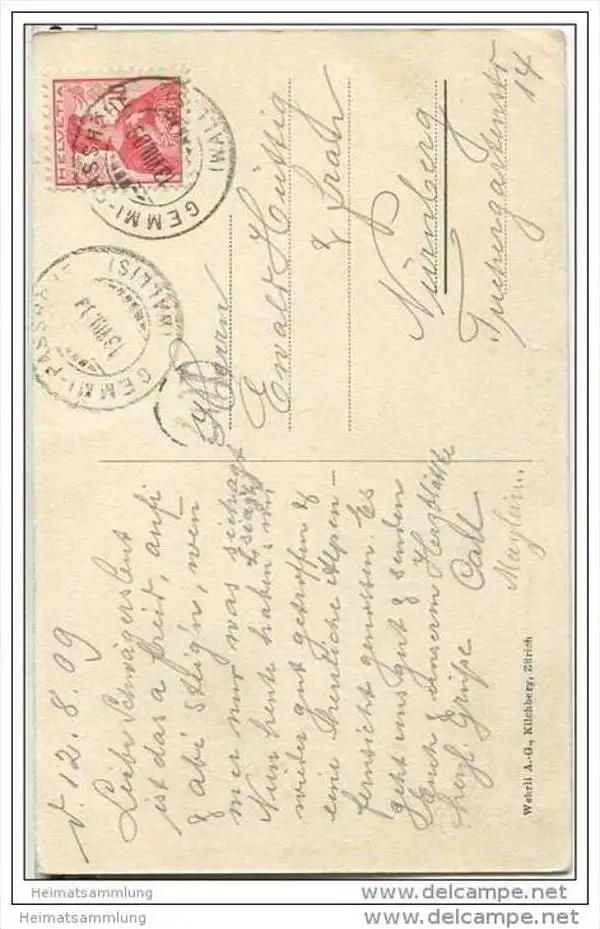 d. 12.8.09
Liebe Schwägersleut
ist das a Freid, aufi
& abi steig'n, wen
mer nur was sieht
& siegst
Nun heute haben wir
wieder gut getroffen &
eine herrliche Alpen-
fernsicht genossen. Es
geht uns gut & senden
Euch & unserm Herzblättle
herzl. Grüsse Carl
Herrn
Ewald Hüttig
& Frau
Nürnberg
Tuchergartenstr
14
HELVETIA
GEMMI-PASSHÖHE
(WALLIS)
GEMMI-PASSHÖHE
(WALLIS)
Wehrli A.-G., Kilchberg, Zürich
Heimatsammlung
Heimatsammlung
www.delcampe.net
www.delcampe.net